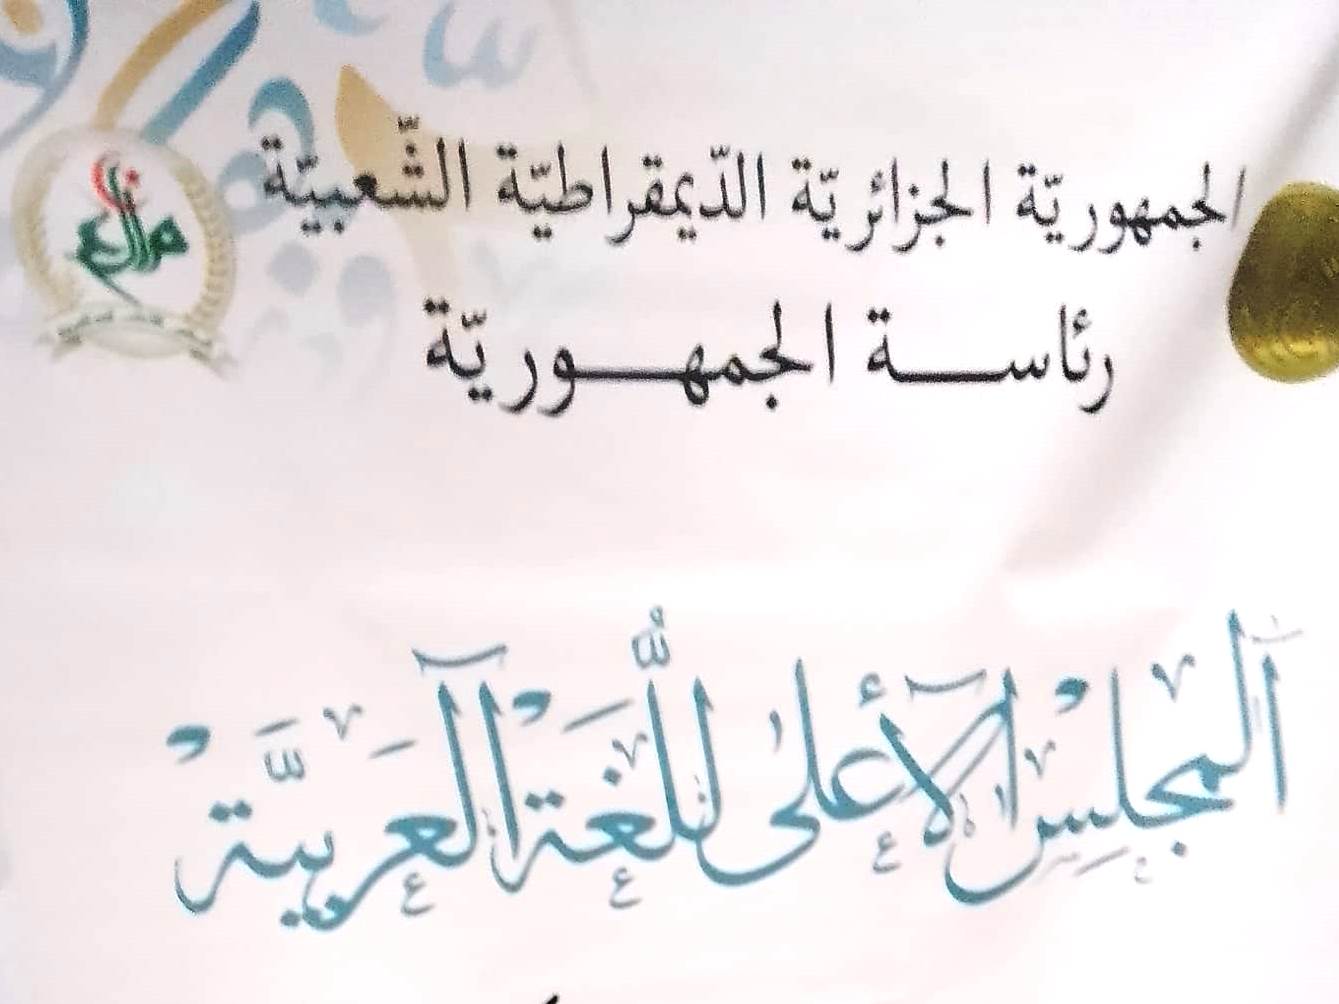 الجمهوريّة الجزائريّة الدّيمقراطيّة الشّعبيّة
رئاسة الجمهوريّة
المجلس الأعلى للّغة العربيّة